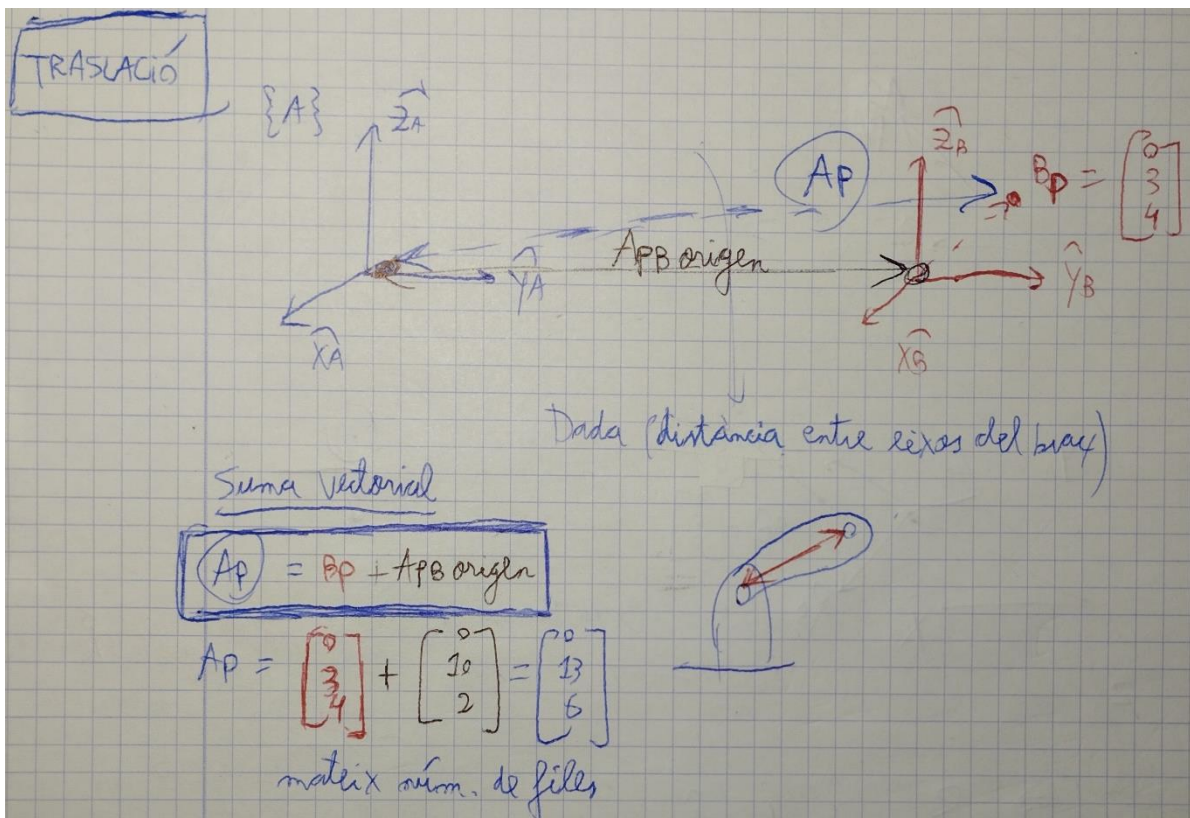 TRASLACIÓ
{A}
ẐA
ẐB
Ap
Bp = [0 3 4]
ApB origen
ŶA
ŶB
X̂A
X̂B
Dada (distància entre eixos del braç)
Suma vectorial
Ap = Bp + ApB origen
Ap = [0 3 4] + [0 10 2] = [0 13 6]
mateix núm. de files